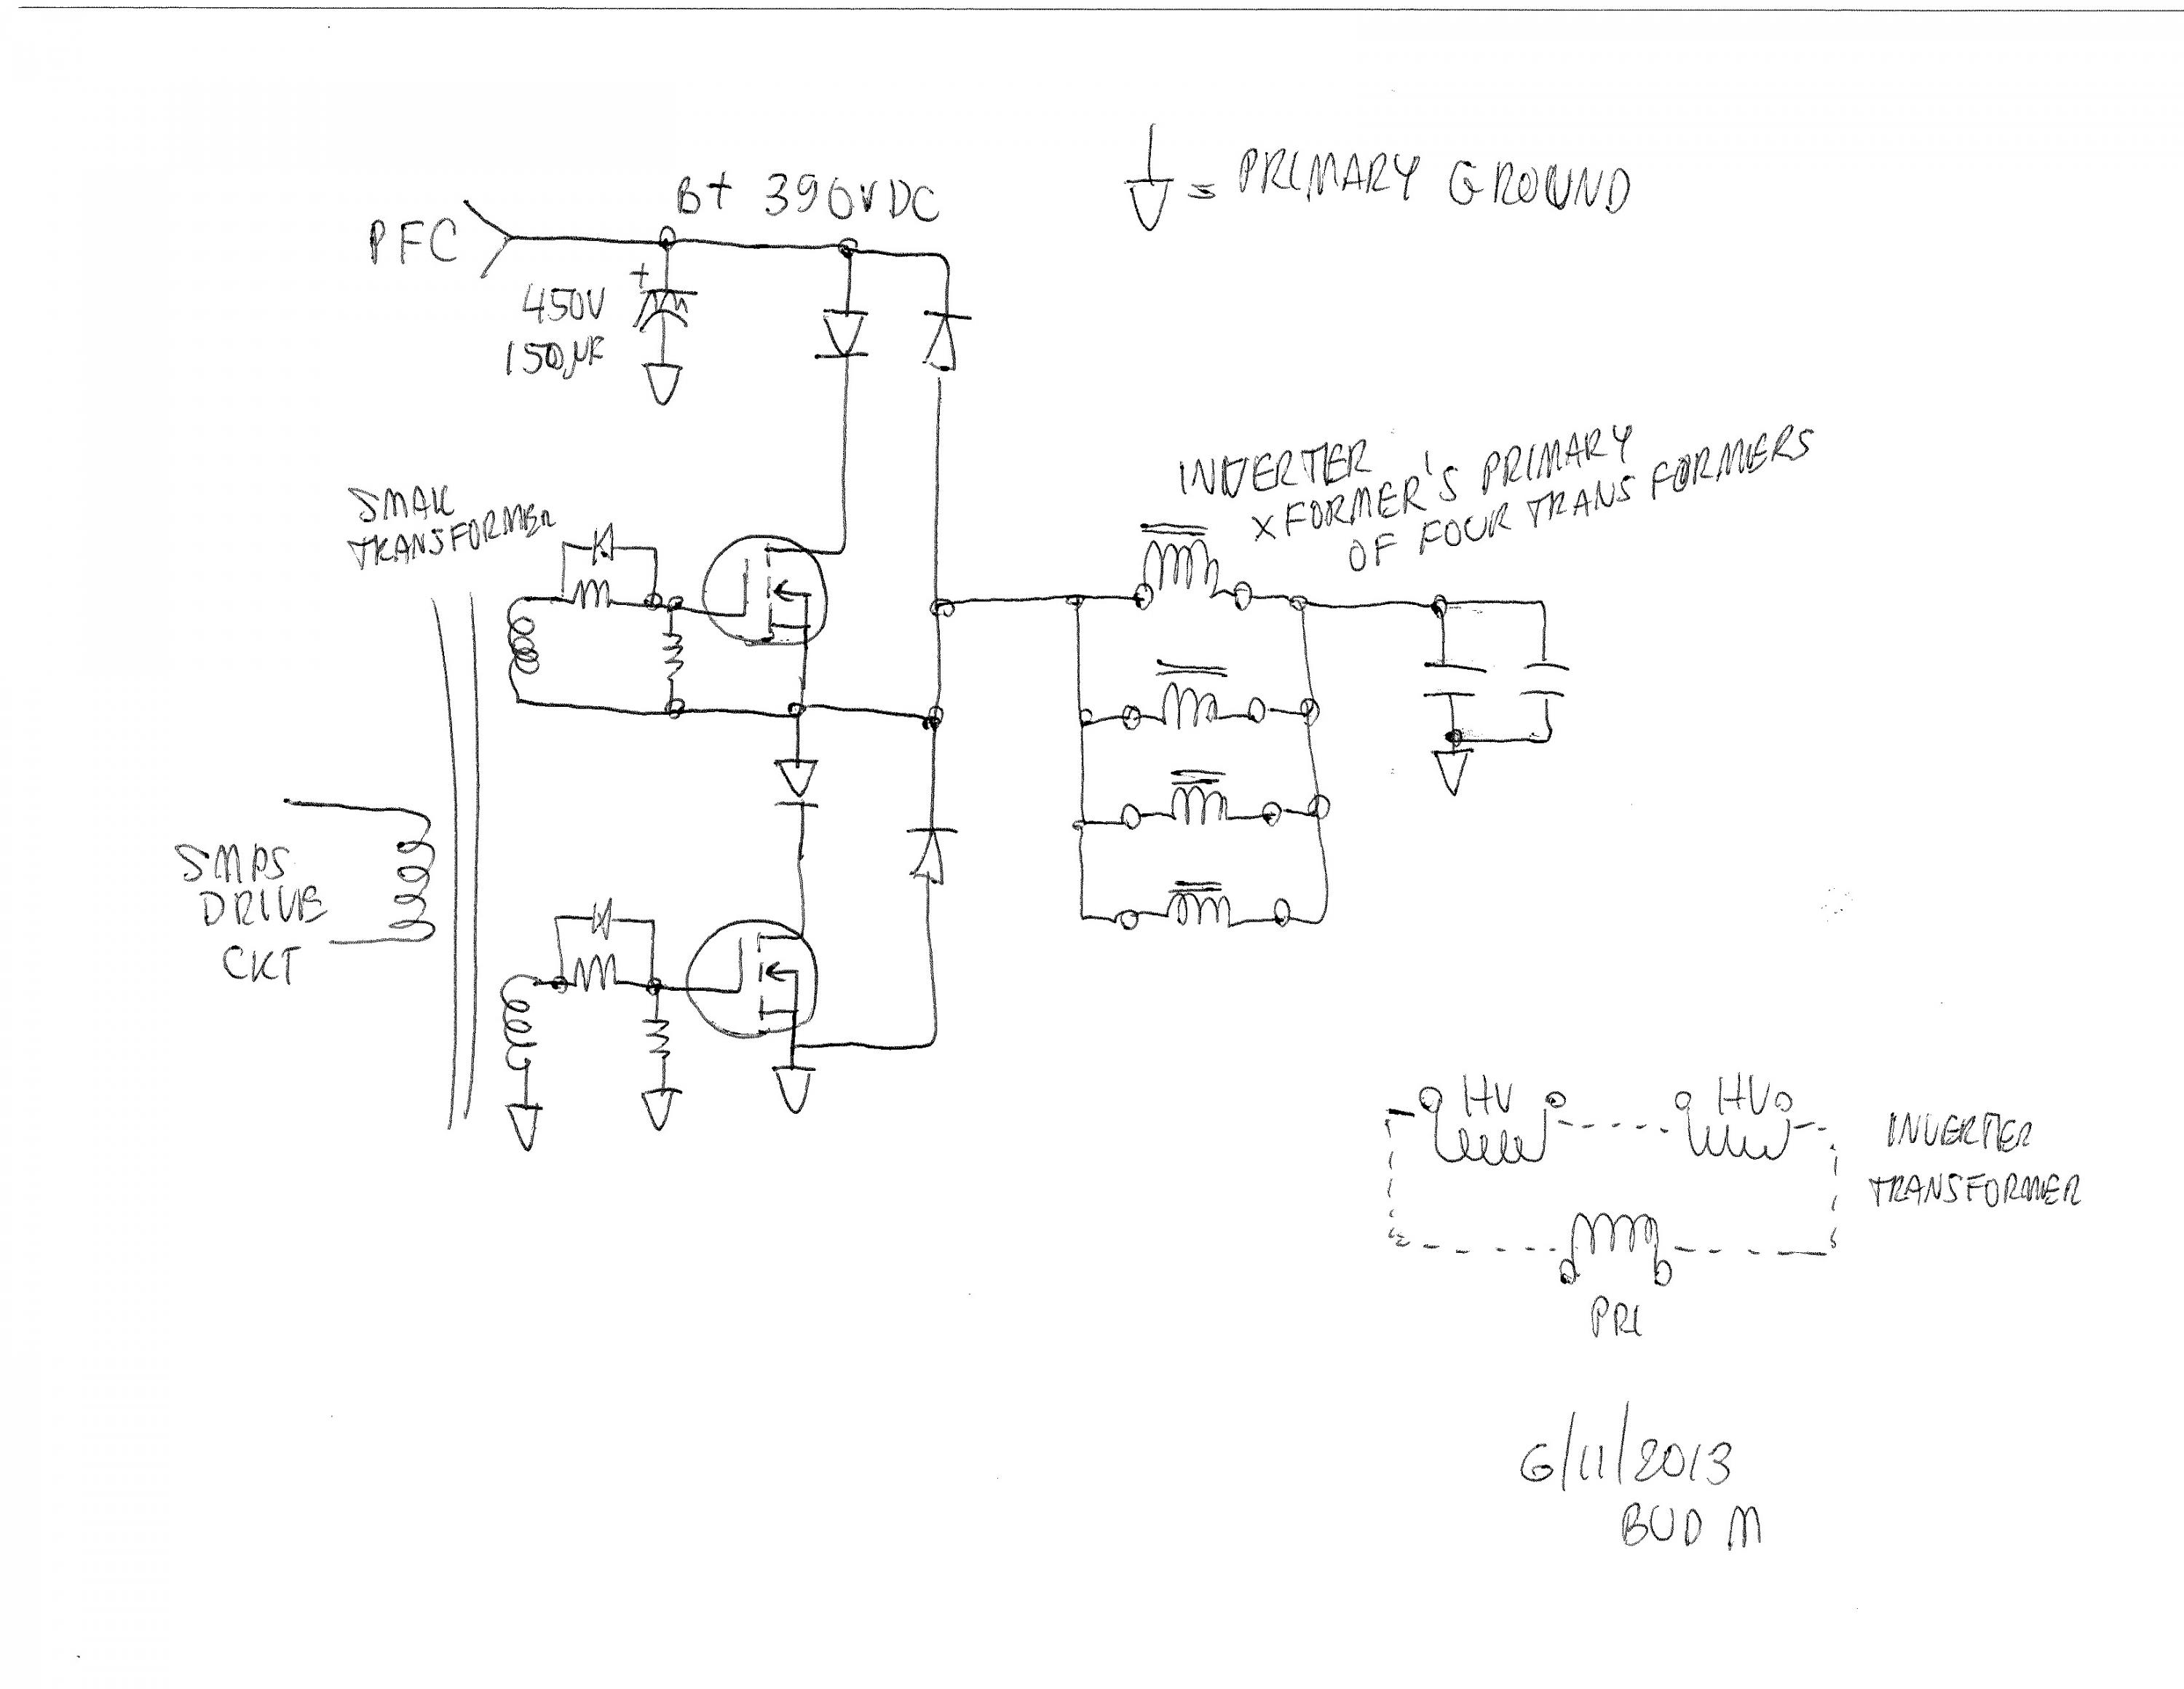 B+ 390VDC
PFC
+
450V
150µF
= PRIMARY GROUND
INVERTER
XFORMER'S PRIMARY
OF FOUR TRANSFORMERS
SMALL
TRANSFORMER
SMPS
DRIVE
CKT
HV HV
INVERTER
TRANSFORMER
PRI
6/11/2013
BUD M